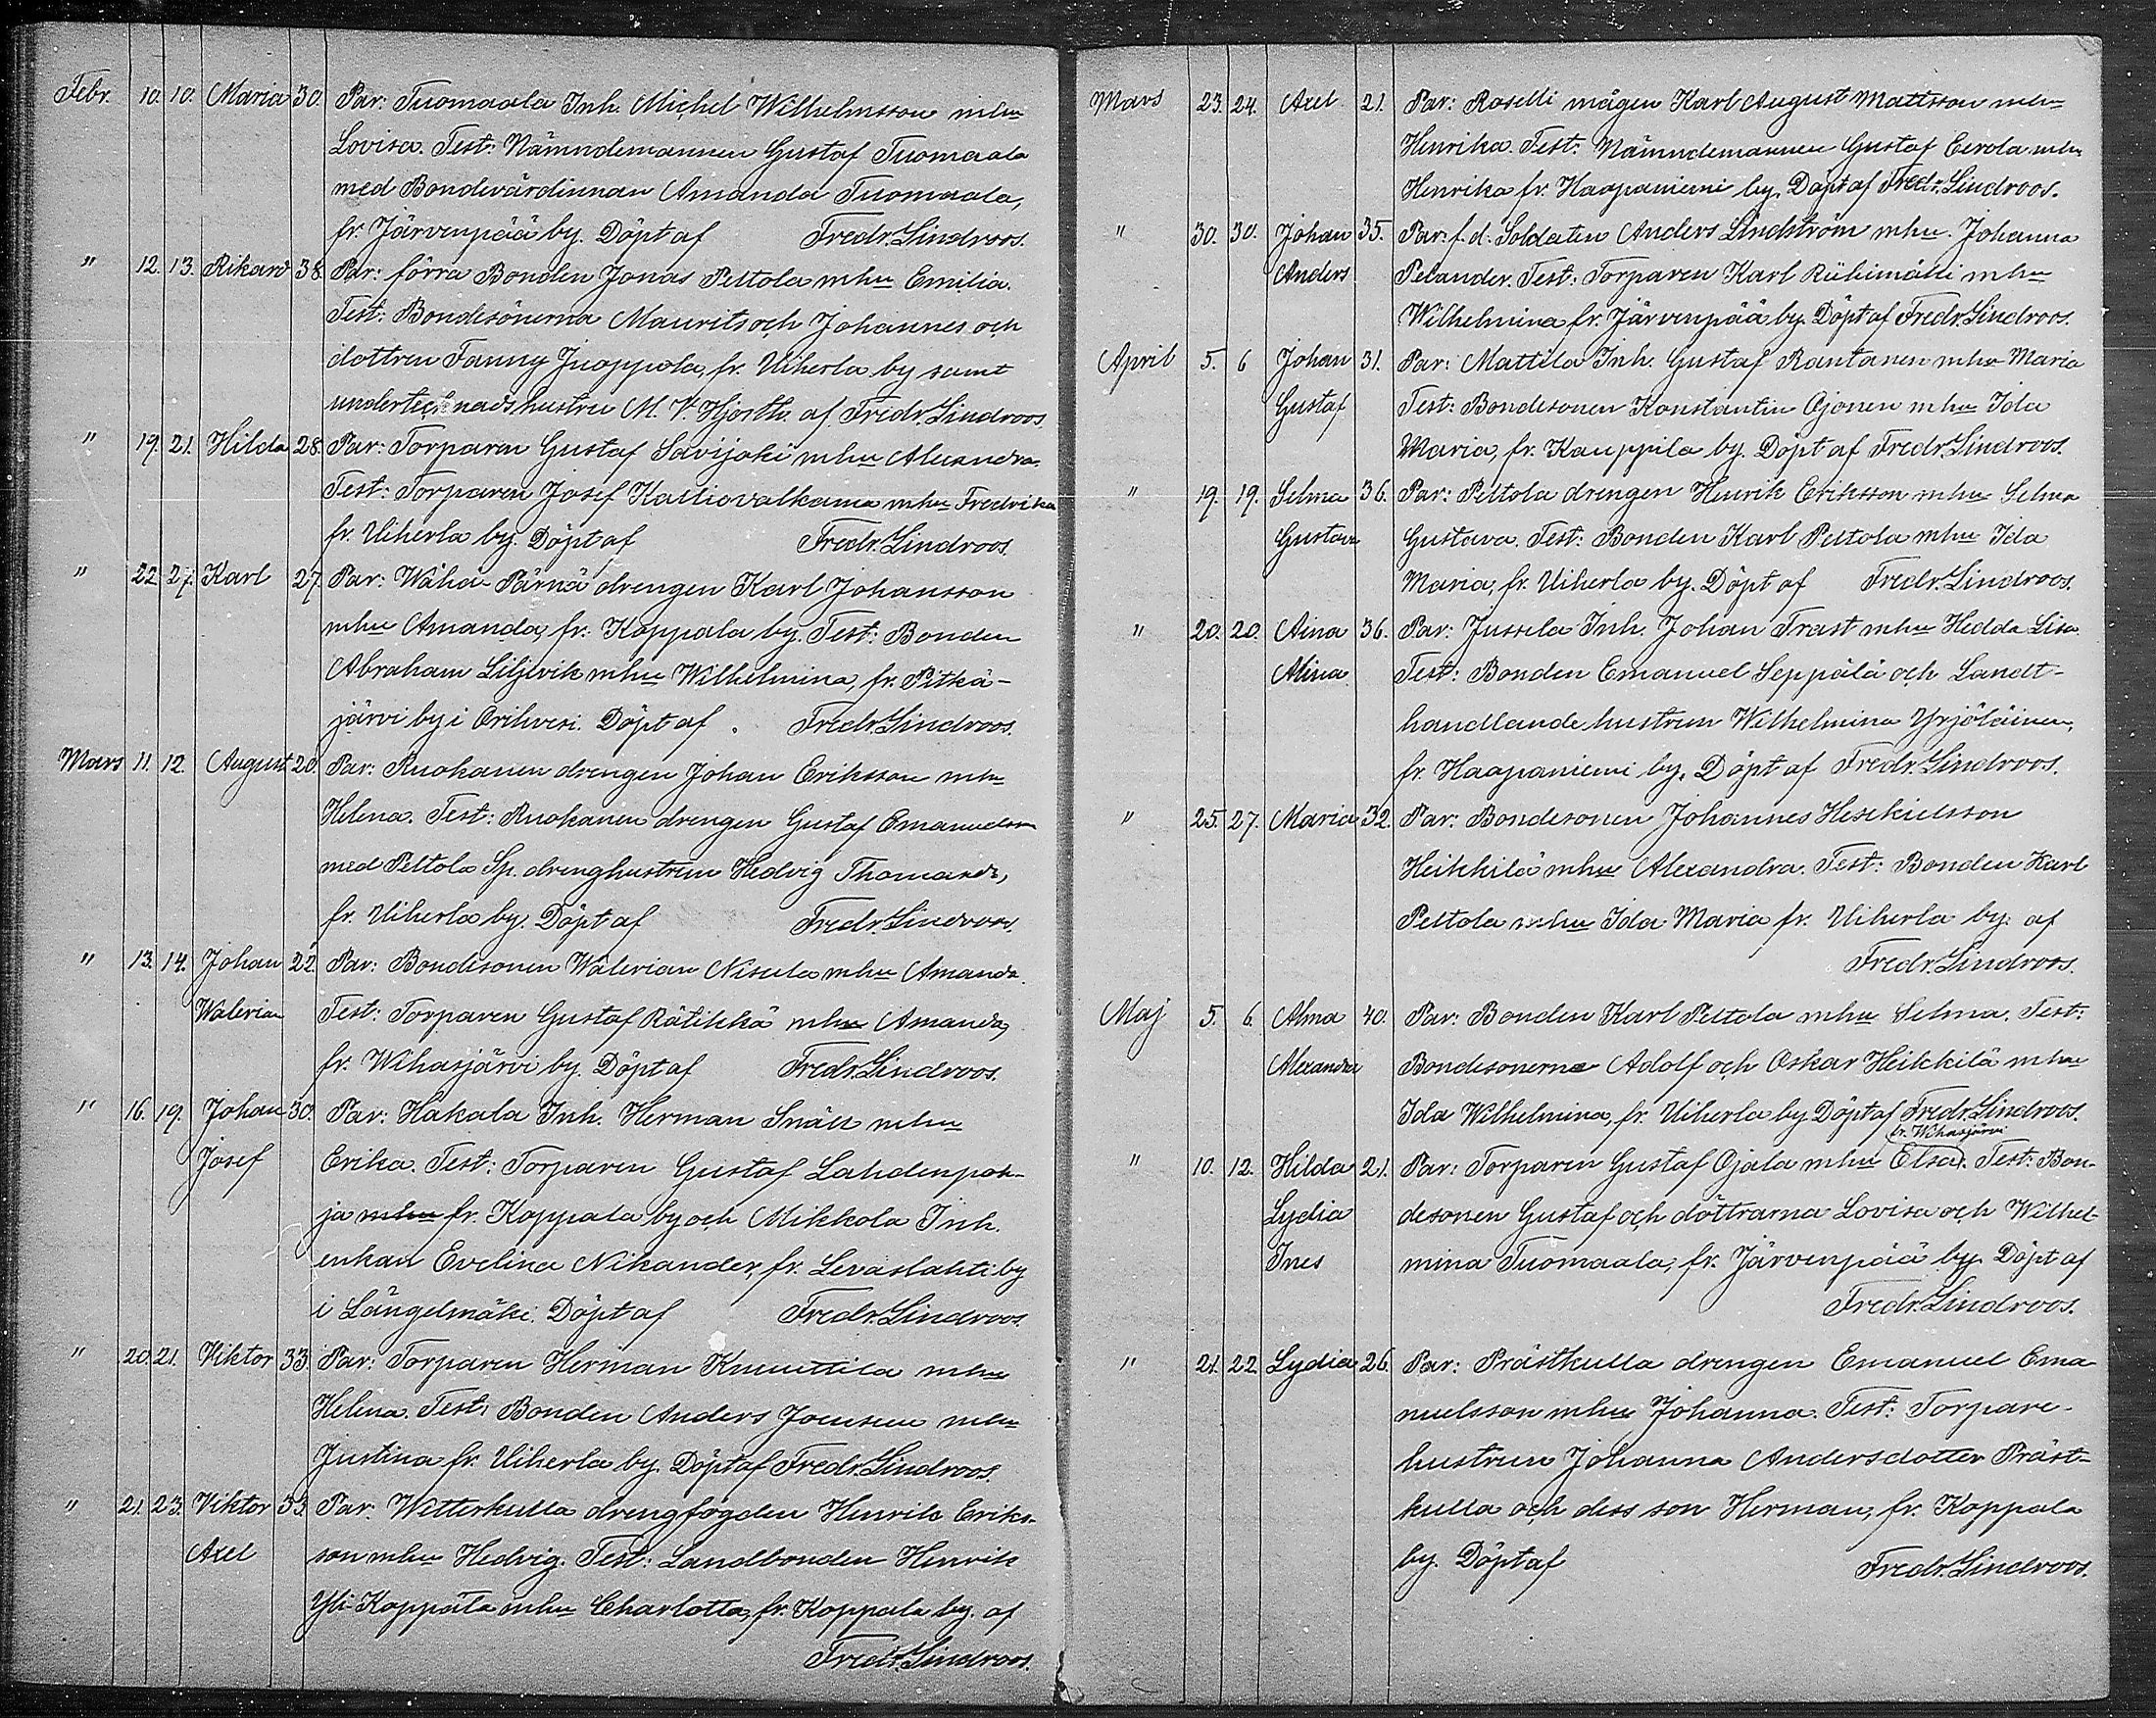 Febr. 10. 10. Maria 30. Par: Tuomaala Inh. Michel Wilhelmsson mhu
Lovisa. Test: Nämndemannen Gustaf Tuomaala
med Bondevärdinnan Amanda Tuomaala,
fr. Järvenpää by. Döpt af Fredr. Lindroos.
" 12. 13. Rikard 38. Par: förra Bonden Jonas Peltola mhu Emilia.
Test: Bondesönerna Maurits och Johannes och
dottren Fanny Juoppola, fr. Uiherla by samt
undertecknads hustru M. V. Hjorth. af Fredr. Lindroos
" 19. 21. Hilda 28. Par: Torparen Gustaf Savijoki mhu Alexandra.
Test: Torparen Josef Kalliovalkama mhu Fredrika
fr. Uiherla by. Döpt af Fredr. Lindroos.
" 22 27. Karl 27. Par: Wäha-Pärnä drengen Karl Johansson
mhu Amanda, fr. Koppala by. Test: Bonden
Abraham Liljevik mhu Wilhelmina, fr. Pitkä-
järvi by i Orihvesi. Döpt af Fredr. Lindroos.
Mars 11. 12. August 20 Par: Ruokanen drengen Johan Eriksson mhu
Helena. Test: Ruokanen drengen Gustaf Emanuelsson
med Peltola Sp. drenghustrun Hedvig Thomasdr,
fr. Uiherla by. Döpt af Fredr. Lindroos.
" 13. 14. Johan 22. Par: Bondesonen Walerian Nisula mhu Amanda.
Walerian Test: Torparen Gustaf Rätikkä mhu Amanda,
fr. Wihasjärvi by. Döpt af Fredr. Lindroos.
" 16. 19. Johan 30. Par: Hakala Inh. Herman Snäll mhu
Josef Erika. Test: Torparen Gustaf Lahdenpoh-
ja mhu fr. Koppala by och Mikkola Inh.
enkan Evelina Nikander, fr. Levaslahti by
i Längelmäki. Döpt af Fredr. Lindroos.
" 20. 21. Viktor 33. Par: Torparen Herman Knuuttila mhu
Helena. Test: Bonden Anders Joensuu mhu
Justina fr. Uiherla by. Döpt af Fredr. Lindroos.
" 21. 23. Viktor 33. Par: Wetterkulla drengfogden Henrik Eriks-
Axel son mhu Hedvig. Test: Landbonden Henrik
Yli-Koppala mhu Charlotta, fr. Koppala by. af
Fredr. Lindroos.
Mars 23. 24. Axel 21. Par: Roselli mågen Karl August Mattsson mhu
Henrika. Test: Nämndemannen Gustaf Eerola mhu
Henrika fr. Haapaniemi by. Döpt af Fredr. Lindroos.
" 30. 30. Johan 35. Par: f. d. Soldaten Anders Lindström mhu. Johanna
Anders Pelander. Test: Torparen Karl Riihimäki mhu
Wilhelmina fr. Järvenpää by. Döpt af Fredr. Lindroos.
April 5. 6 Johan 31. Par: Mattila Inh. Gustaf Rantanen mhu Maria
Gustaf Test: Bondesonen Konstantin Ojonen mhu Ida
Maria, fr. Kauppila by. Döpt af Fredr. Lindroos.
" 19. 19. Selma 36. Par: Peltola drengen Henrik Eriksson mhu Selma
Gustava Gustava. Test: Bonden Karl Peltola mhu Ida
Maria, fr. Uiherla by. Döpt af Fredr. Lindroos.
" 20. 20. Aina 36. Par: Jussela Inh. Johan Trast mhu Hedda Lisa
Alina Test: Bonden Emanuel Seppälä och Landt-
handlande hustrun Wilhelmina Yrjöläinen,
fr. Haapaniemi by. Döpt af Fredr. Lindroos.
" 25. 27. Maria 32. Par: Bondesonen Johannes Hesekielsson
Heikkilä mhu Alexandra. Test: Bonden Karl
Peltola mhu Ida Maria fr. Uiherla by. af
Fredr. Lindroos.
Maj 5. 6. Alma 40. Par: Bonden Karl Peltola mhu Selma. Test:
Alexandra Bondesonerna Adolf och Oskar Heikkilä mhu
Ida Wilhelmina, fr. Uiherla by Döpt af Fredr. Lindroos.
fr. Wihasjärvi
" 10. 12. Hilda 21. Par: Torparen Gustaf Ojala mhu Elsa. Test: Bon-
Lydia desonen Gustaf och döttrarna Lovisa och Wilhel-
Ines mina Tuomaala, fr. Järvenpää by. Döpt af
Fredr. Lindroos.
" 21. 22. Lydia 26. Par: Prästkulla drengen Emanuel Ema-
nuelsson mhu Johanna. Test: Torpare-
hustrun Johanna Andersdotter Präst-
kulla och dess son Herman, fr. Koppala
by. Döpt af Fredr. Lindroos.